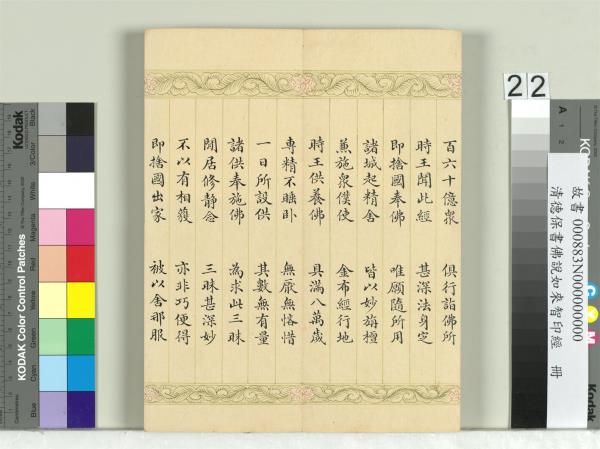 百六十億衆 俱行詣佛所
時王聞此經 甚深法身定
即捨國奉佛 唯願隨所用
諸城起精舍 皆以妙旃檀
蕉施衆僕使 金布經行地
時王供養佛 具滿八萬歲
專精不睡卧 無厭無悋惜
一日所設供 其數無有量
諸供奉施佛 為求此三昧
閒居修静念 三昧甚深妙
不以有相獲 亦非巧便得
即捨國出家 被以舍那服
22
故書 000883N000000000
清德保書佛説如來智印經 冊
Kodak
KODAK Color Control Patches
Blue
Cyan
Green
Yellow
Red
Magenta
White
3/Color
Black
Centimetres
A 1 2
Kodak
C Y M